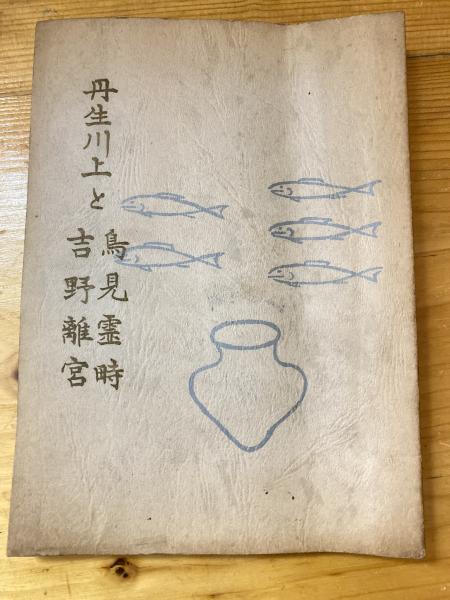 丹生川上と
鳥見霊畤
吉野離宮